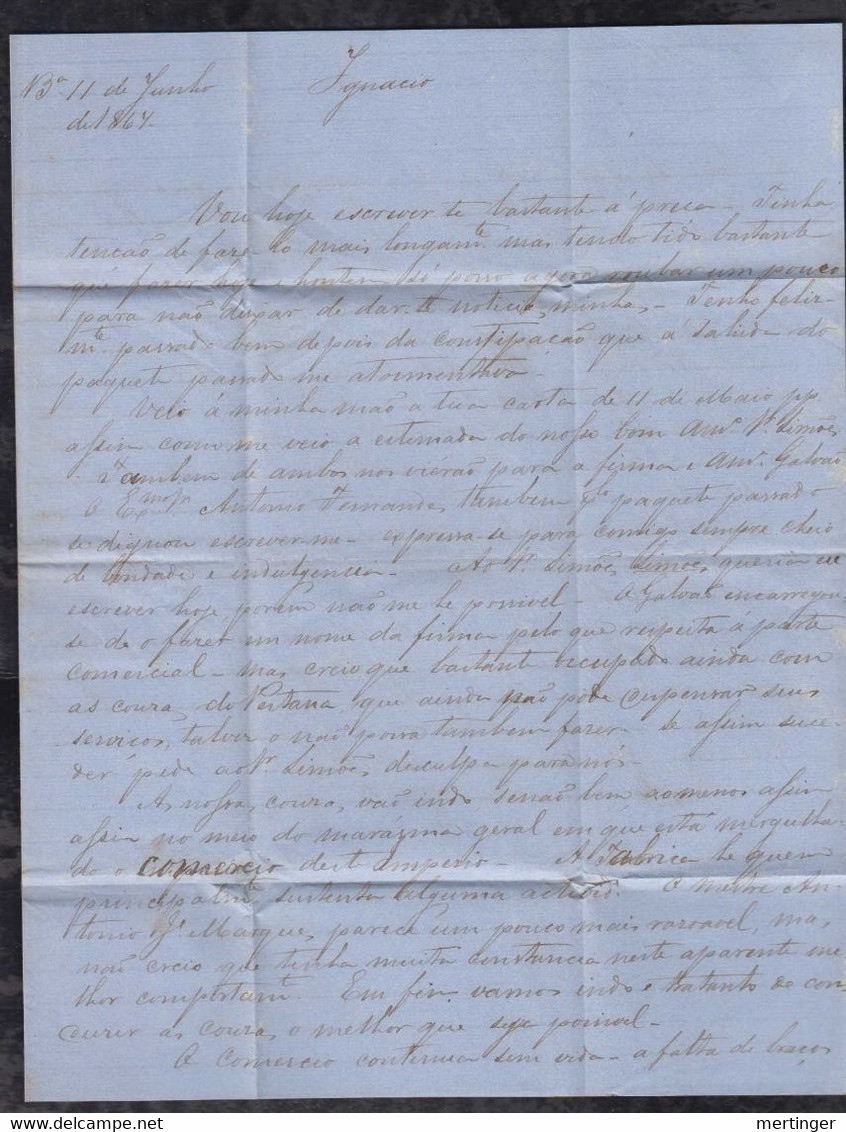 Bª 11 de Junho
de 1864
Ignacio
Vou hoje escrever-te bastante á preça - Tinha
tenção de faze-lo mais longamte mas tendo tido bastante
que fazer hoje e hontem só posso agora roubar um pouco
para não deixar de dar-te noticias minhas - Tenho feliz-
mte passado bem depois da constipacão que á sahida do
paquete passado me atormentava
Veio á minha mão a tua carta de 11 de Maio pp
assim como me veio a estimada do nosso bom amº Sr. Simões
Tambem de ambos nos vierão para a firma e amº Galvão
O Exmo Sr Antonio Fernandes tambem pº paquete passado
se dignou escrever-me - expressa-se para comigo sempre cheio
de bondade e indulgencia - Ao Sr. Simões, Simões, queria eu
escrever hoje, porem não me he possivel - O Galvão encarregou-
se de o fazer em nome da firma pelo que respeita á parte
comercial - mas creio que bastante occupado ainda com
as couzas do Pestana que ainda não póde despensar seus
serviços, talvez o não possa tambem fazer - Se assim suce-
der pede ao Sr. Simões desculpa para nós -
As nossas couzas vão indo senão bem ao menos assim
assim no meio do marásma geral em que está mergulha-
do o Comercio deste imperio - A Fabrica he quem
principalmte sustenta alguma activid. O mestre An-
tonio Jº Marques parece um pouco mais razoavel, mas
não creio que tenha muita constancia neste aparente me-
lhor comportamtº Em fim vamos indo e tratando de con-
duzir as couzas o melhor que seja possivel -
O Comercio continua sem vida - a falta de braços
mertinger